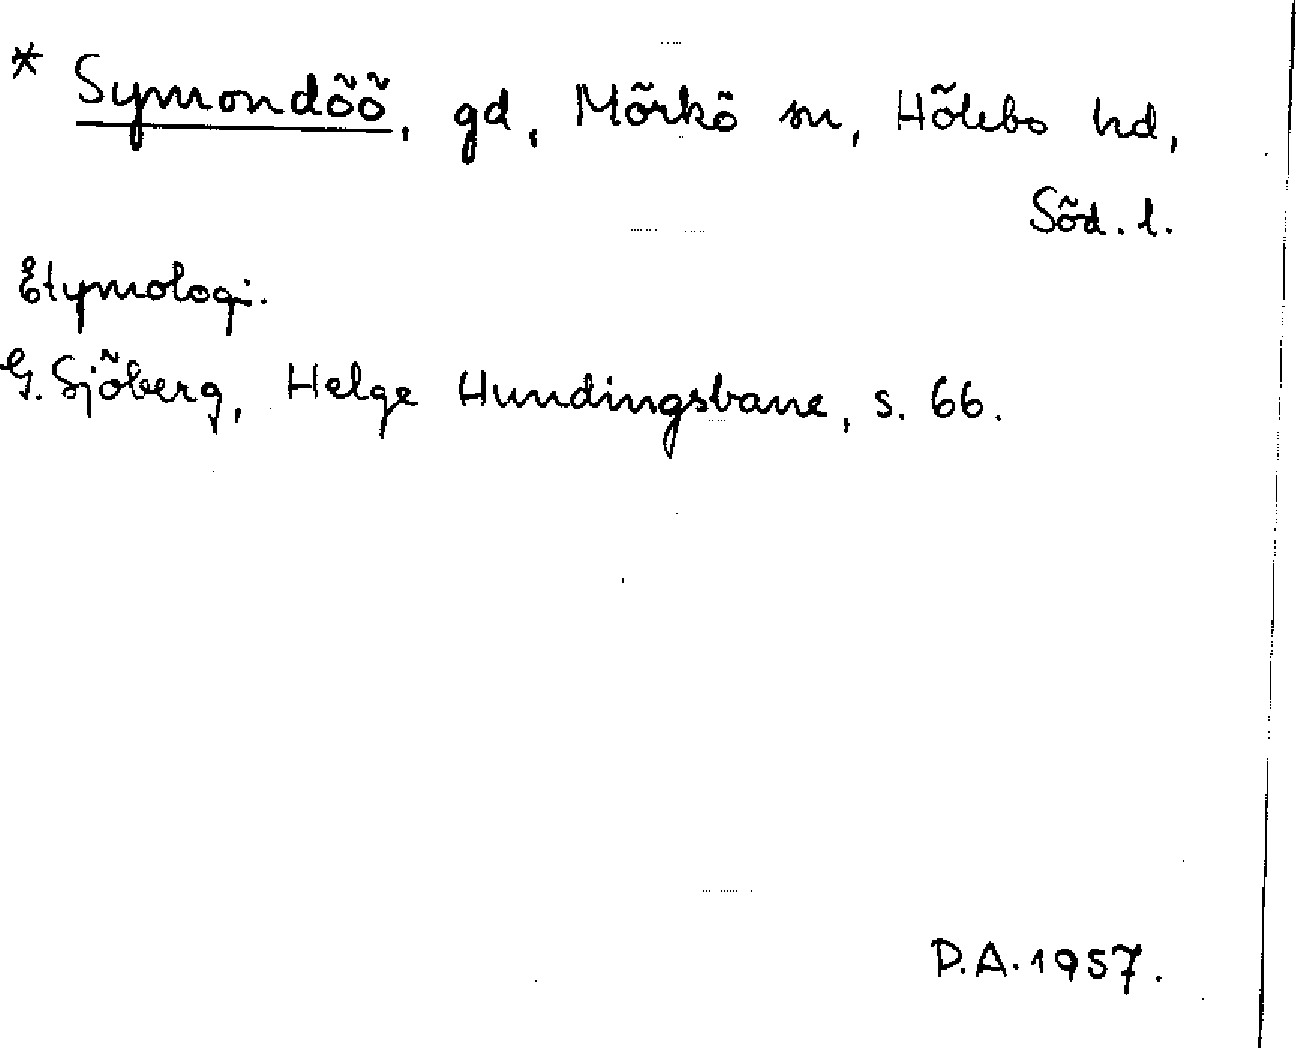 * Symondöö, gd, Mörkö sn, Hölebo hd,
Söd. l.
Etymologi.
G. Sjöberg, Helge Hundingsbane, s. 66.
D.A. 1957.